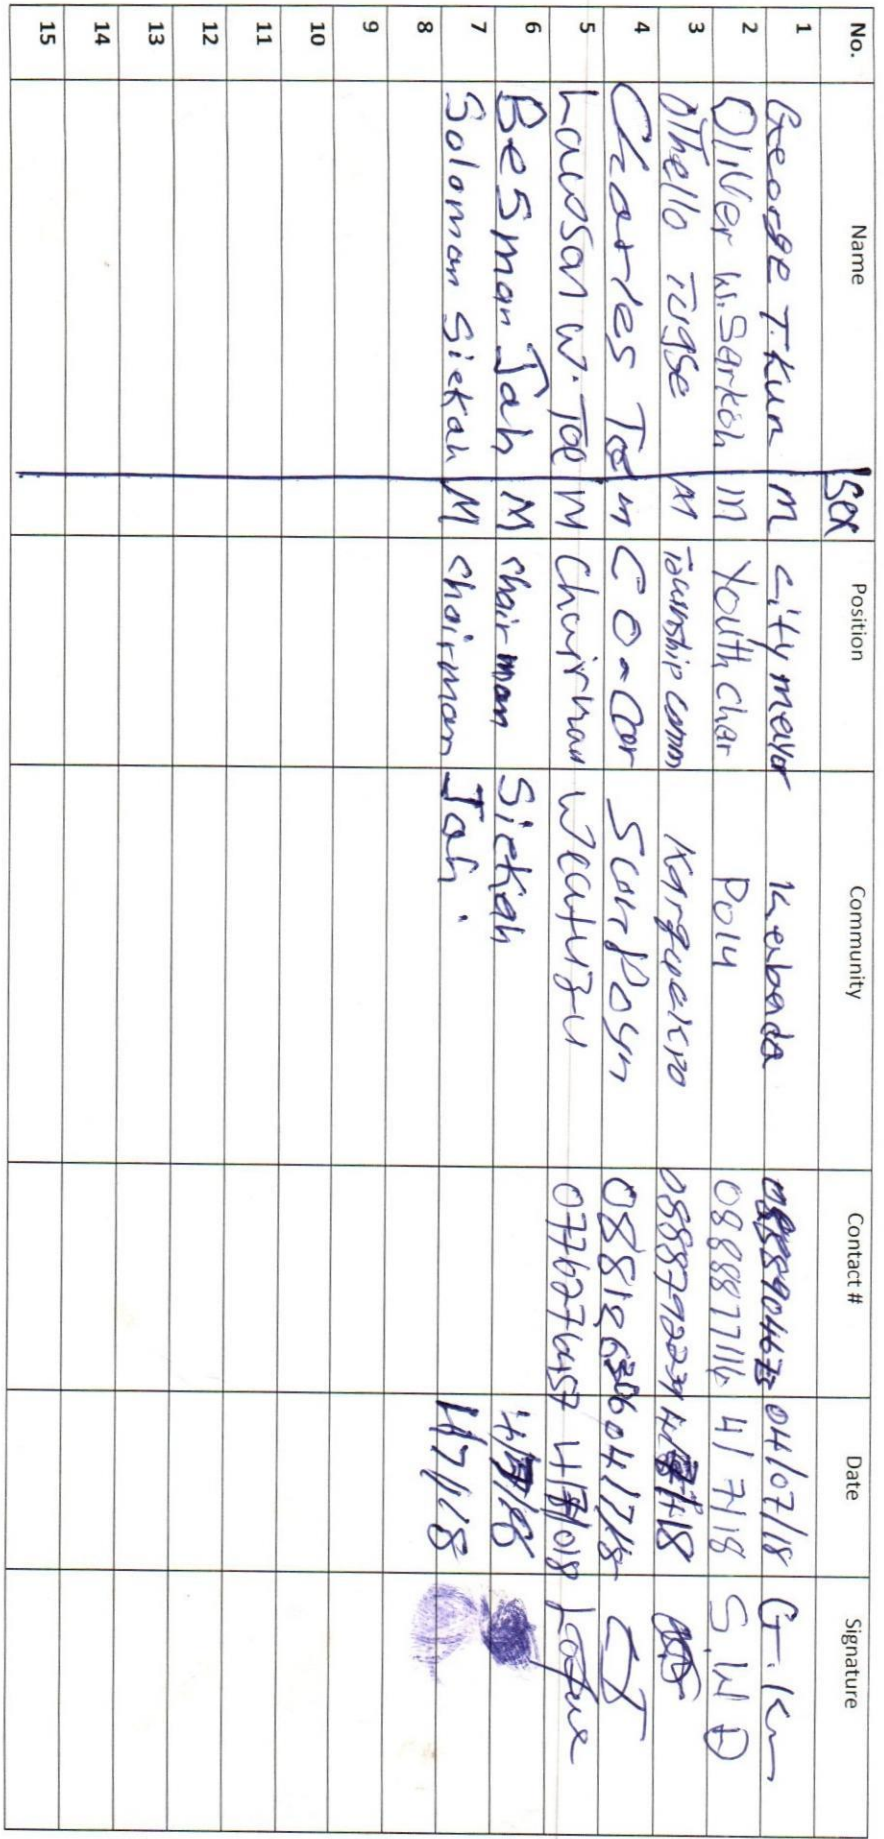 No. Name Sex Position Community Contact # Date Signature
1 George T. Kun M City mayor Kabada 04/07/18 G. Kun
2 Oliver W. Sarkoh M Youth Char Polu 0888877116 4/7/18 S.W.D
3 Othello Tugse M Township comm Karquekpo
4 Charles Toe M CO-Cor SunPoyn 04/7/18 CT
5 Lawson W. Toe M Chairman Weatuzu 0776276457
6 Besman Jah M chairman Siekah
7 Solomon Siekah M chairman Jah 4/7/18
8
9
10
11
12
13
14
15